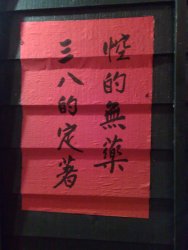 悾的無藥
三八的定著